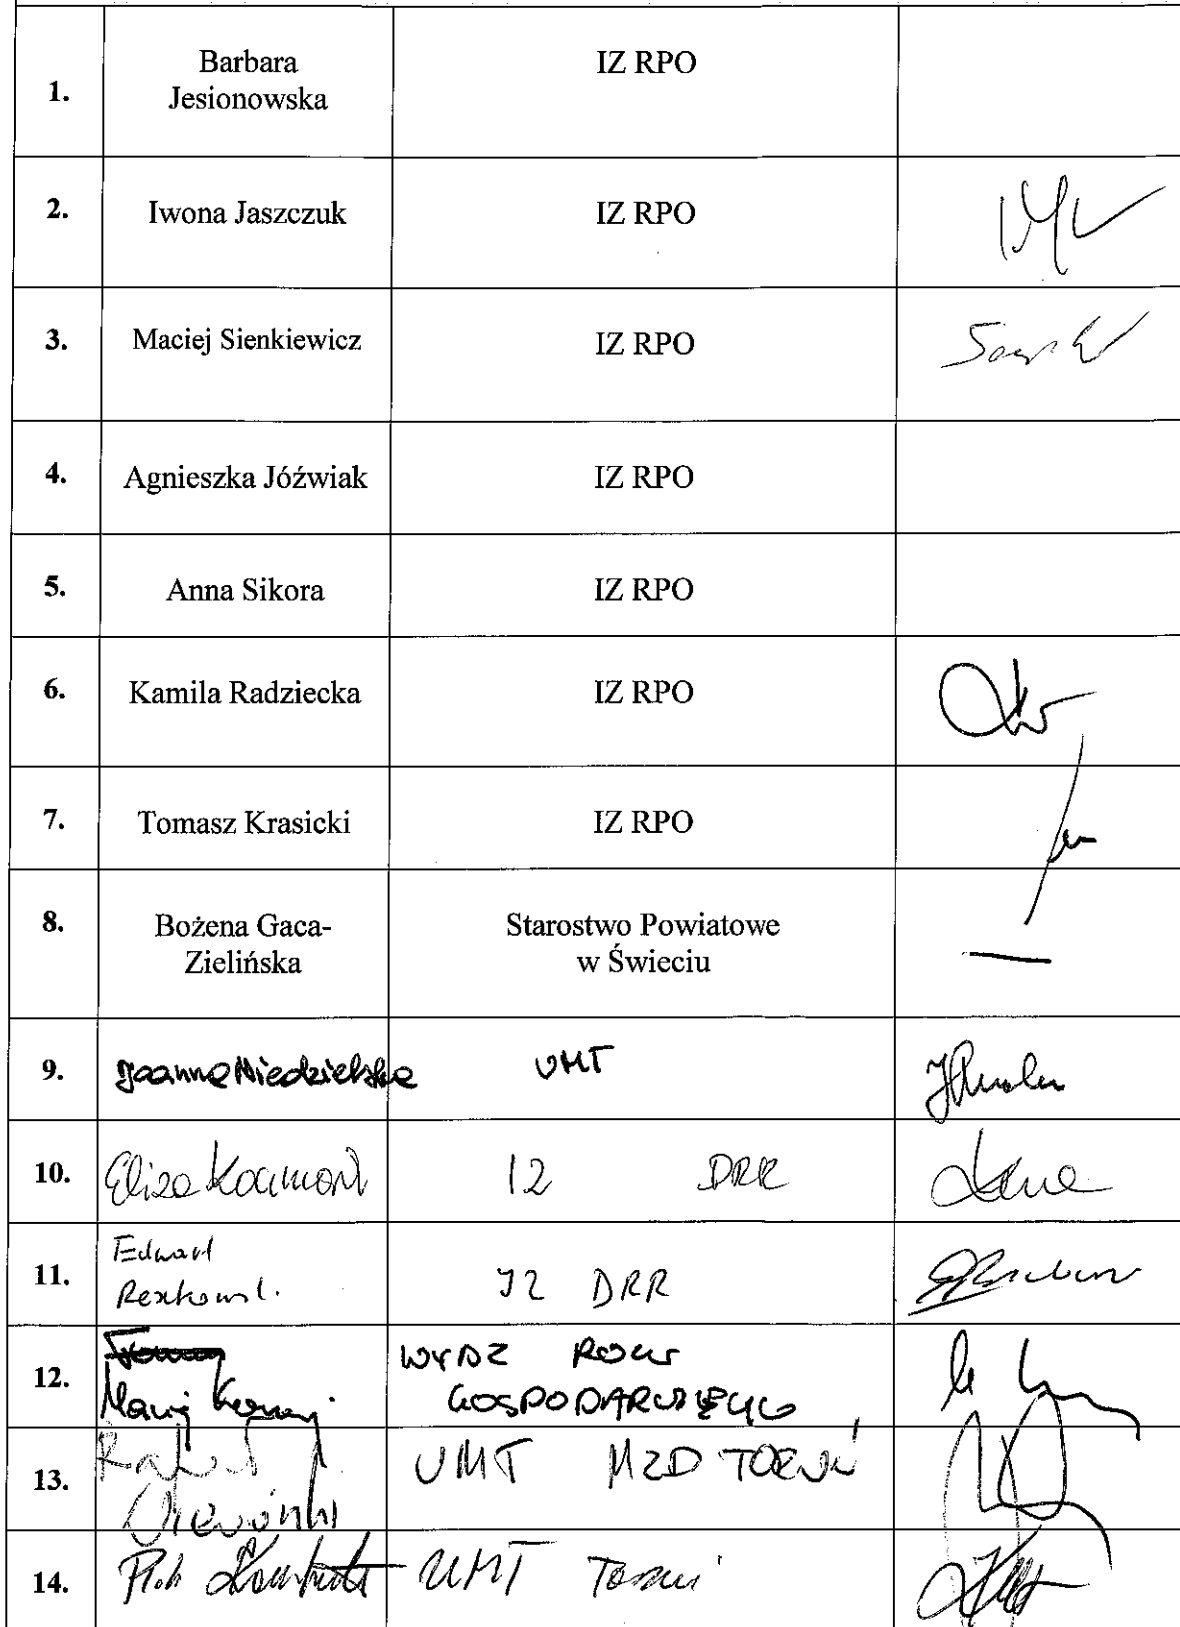 1. Barbara Jesionowska IZ RPO
2. Iwona Jaszczuk IZ RPO
3. Maciej Sienkiewicz IZ RPO
4. Agnieszka Jóźwiak IZ RPO
5. Anna Sikora IZ RPO
6. Kamila Radziecka IZ RPO
7. Tomasz Krasicki IZ RPO
8. Bożena Gaca-
Zielińska
Starostwo Powiatowe
w Świeciu
9. Joanna Niedzielska UMT
10. Eliza IZ DRR
11. Edward
IZ DRR
12.
WYDZ
13. UMT MZD TORUŃ
14. UMT Toruń